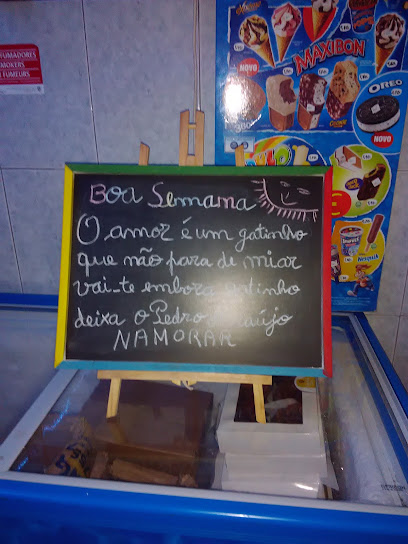 FUMADORES
SMOKERS
FUMEURS
MAXIBON
NOVO
OREO
NOVO
Boa Semana
O amor é um gatinho
que não para de miar
vai-te embora gatinho
deixa o Pedro Araújo
NAMORAR